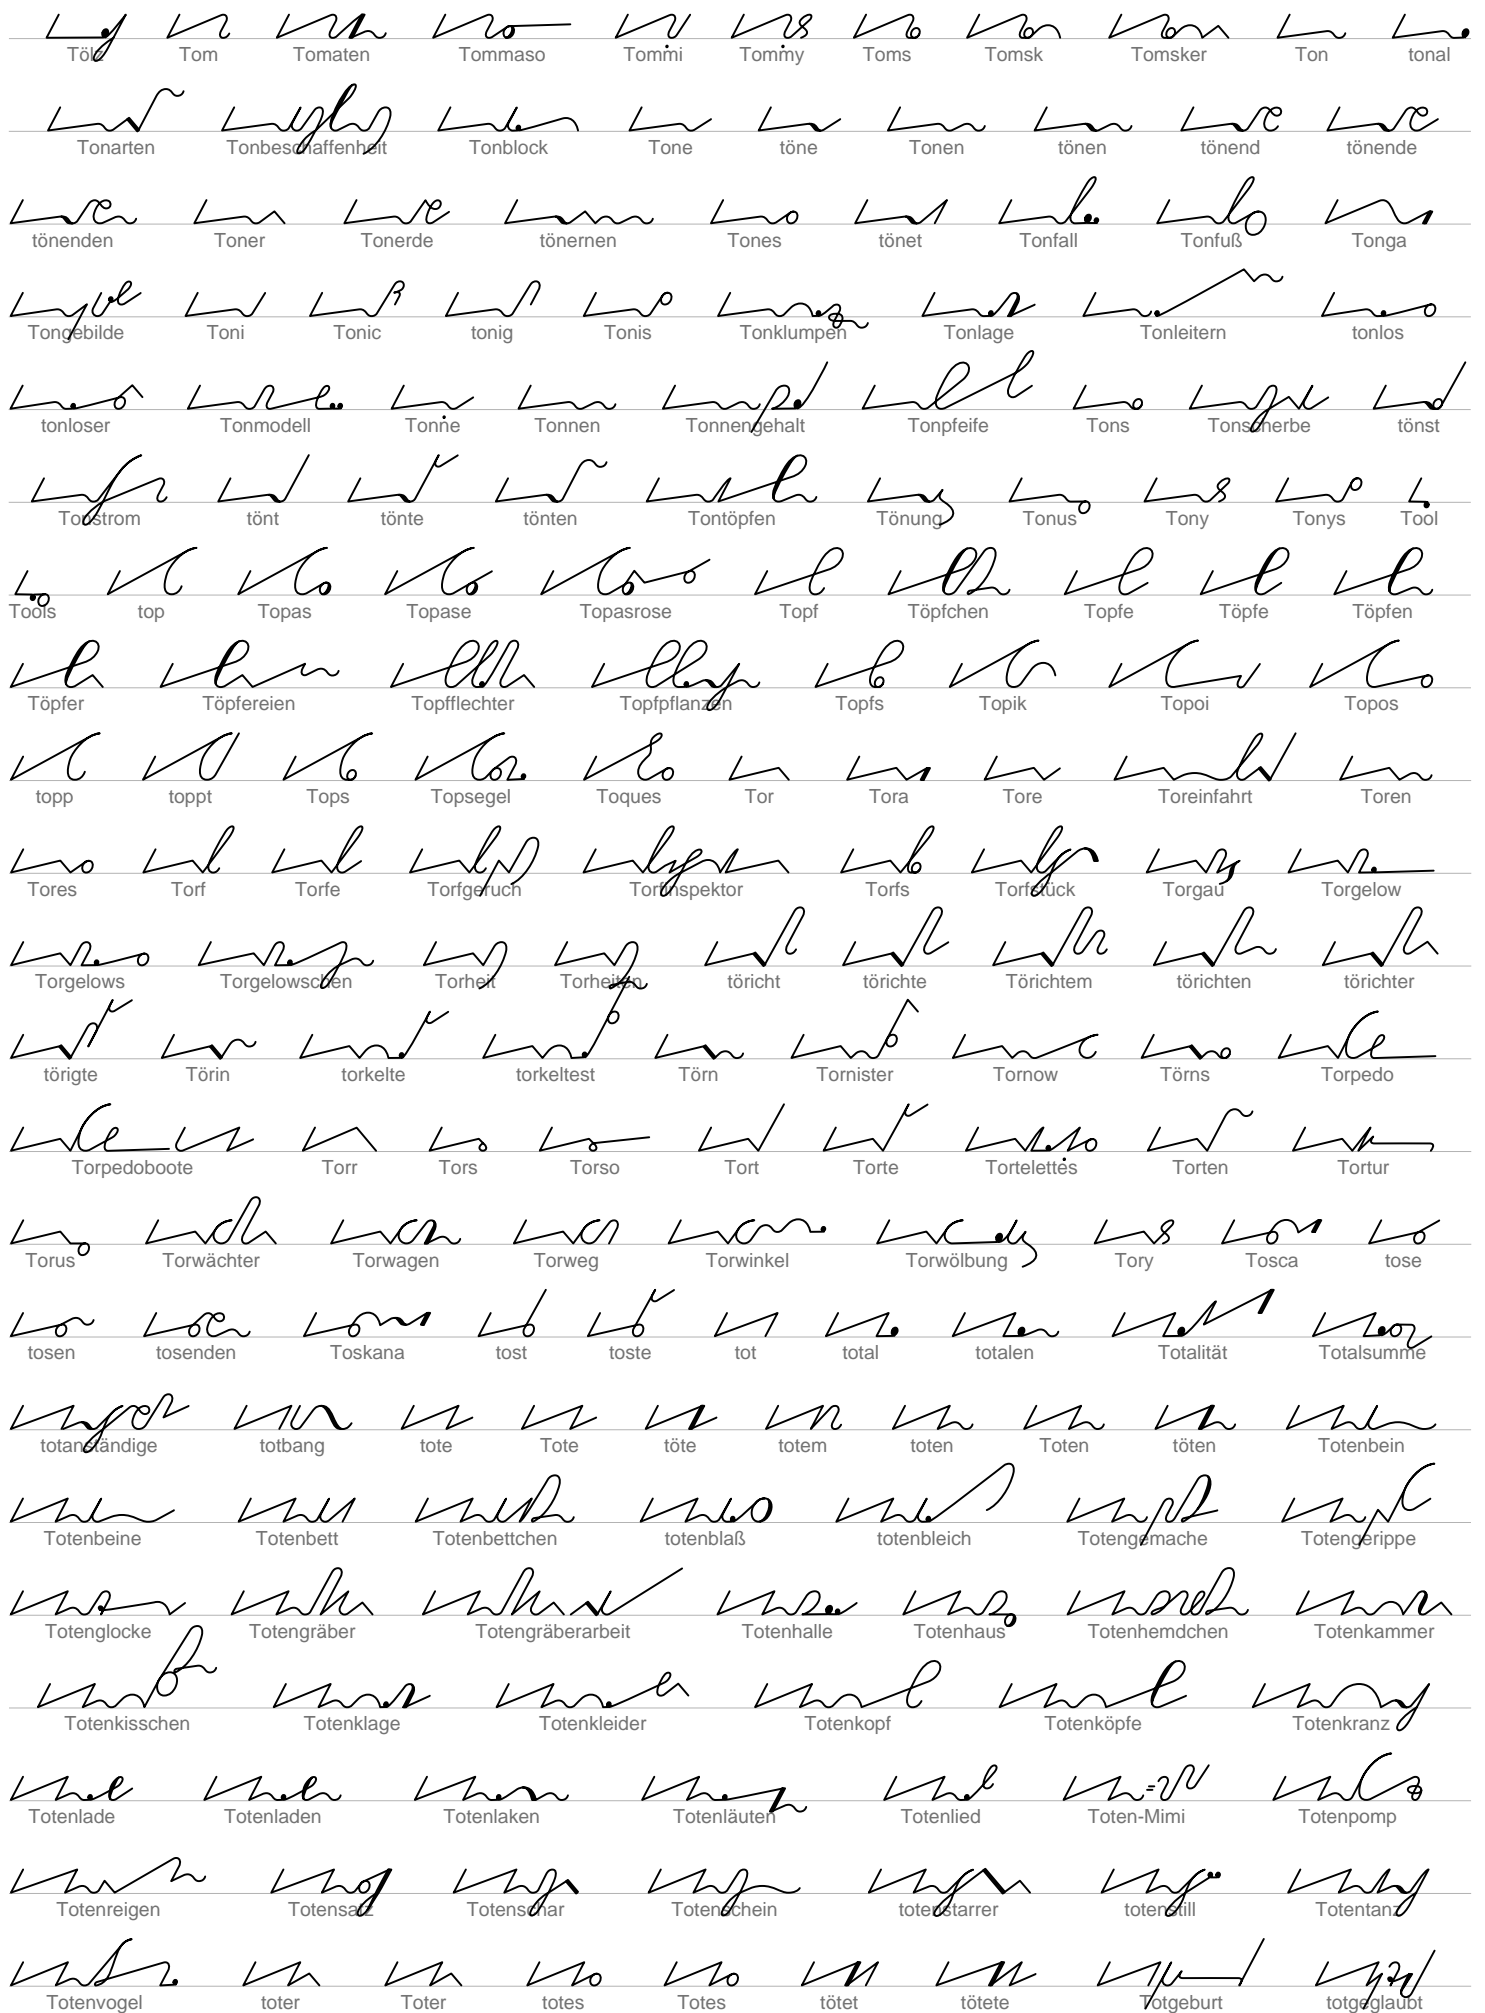 Tölz Tom Tomaten Tommaso Tommi Tommy Toms Tomsk Tomsker Ton tonal
Tonarten Tonbeschaffenheit Tonblock Tone töne Tonen tönen tönend tönende
tönenden Toner Tonerde tönernen Tones tönet Tonfall Tonfuß Tonga
Tongebilde Toni Tonic tonig Tonis Tonklumpen Tonlage Tonleitern tonlos
tonloser Tonmodell Tonne Tonnen Tonnengehalt Tonpfeife Tons Tonscherbe tönst
Tonstrom tönt tönte tönten Tontöpfen Tönung Tonus Tony Tonys Tool
Tools top Topas Topase Topasrose Topf Töpfchen Topfe Töpfe Töpfen
Töpfer Töpfereien Topfflechter Topfpflanzen Topfs Topik Topoi Topos
topp toppt Tops Topsegel Toques Tor Tora Tore Toreinfahrt Toren
Tores Torf Torfe Torfgeruch Torfinspektor Torfs Torfstück Torgau Torgelow
Torgelows Torgelowschen Torheit Torheiten töricht törichte Törichtem törichten törichter
törigte Törin torkelte torkeltest Törn Tornister Tornow Törns Torpedo
Torpedoboote Torr Tors Torso Tort Torte Tortelettes Torten Tortur
Torus Torwächter Torwagen Torweg Torwinkel Torwölbung Tory Tosca tose
tosen tosenden Toskana tost toste tot total totalen Totalität Totalsumme
totanständige totbang tote Tote töte totem toten Toten töten Totenbein
Totenbeine Totenbett Totenbettchen totenblaß totenbleich Totengemache Totengerippe
Totenglocke Totengräber Totengräberarbeit Totenhalle Totenhaus Totenhemdchen Totenkammer
Totenkisschen Totenklage Totenkleider Totenkopf Totenköpfe Totenkranz
Totenlade Totenladen Totenlaken Totenläuten Totenlied Toten-Mimi Totenpomp
Totenreigen Totensatz Totenschar Totenschein totenstarrer totenstill Totentanz
Totenvogel toter Toter totes Totes tötet tötete Totgeburt totgeglaubt